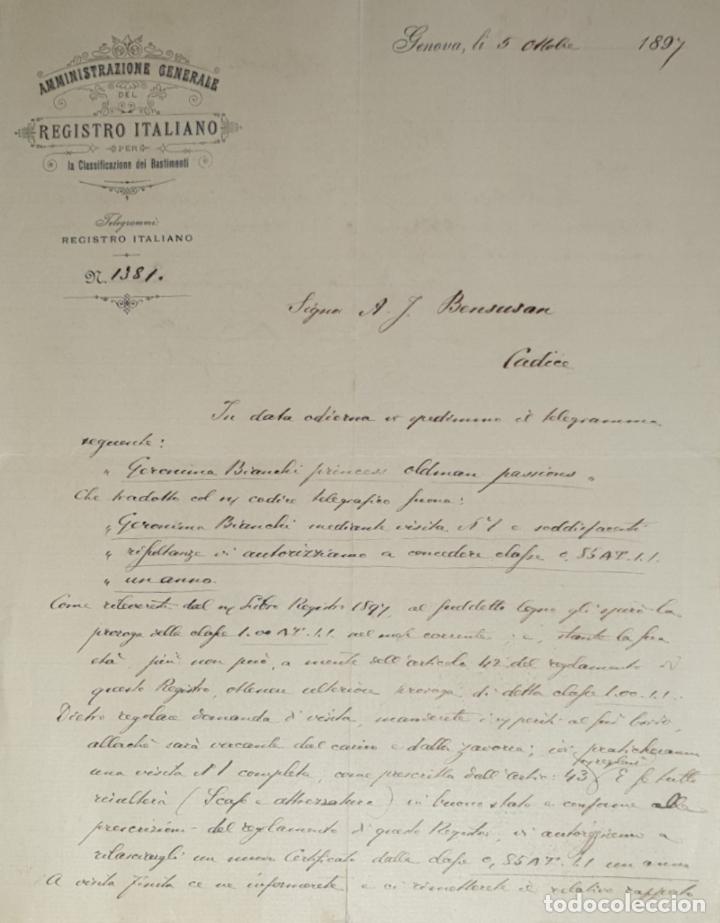 Genova, li 5 Ottobre 1897
AMMINISTRAZIONE GENERALE
DEL
REGISTRO ITALIANO
PER
la Classificazione dei Bastimenti
Telegrammi
REGISTRO ITALIANO
N. 1381.
Signor A. J. Bensusan
Cadice
In data odierna vi spedimmo il telegramma
seguente:
" Geronima Bianchi princess oldman passions "
Che tradotto col ns/ codice telegrafico suona:
" Geronima Bianchi mediante visita N°1 e soddisfacenti
" risultanze vi autorizziamo a concedere classe
" un anno
Come rileverete dal ns/ Libro Registro 1897, al suddetto legno gli spirò la
proroga della classe 1.00 nel mese corrente; e, stante la sua
età, più non può, a mente dell'articolo 42 del regolamento di
questo Registro, ottenere ulteriore proroga di detta classe 1.00
Dietro regolare domanda di visita, manderete i periti al suo bordo,
allorchè sarà vacante dal carico e dalla zavorra; ivi praticheranno
una visita N°1 completa, come prescritta dall'artic: 43 E se tutto
risulterà (Scafo e attrezzatura) in buono stato e conforme alle
prescrizioni del regolamento di questo Registro, vi autorizziamo a
rilasciargli un nuovo Certificato dalla classe un anno
A visita finita ce ne informerete e ci rimetterete il relativo rapporto
todocoleccion